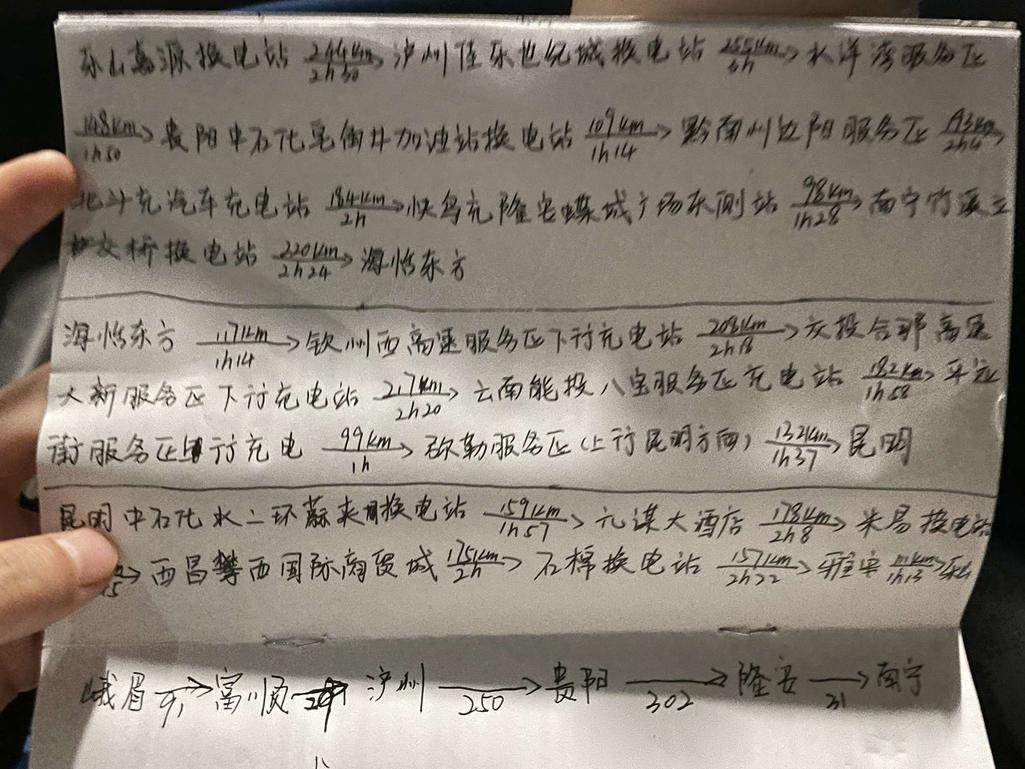 乐山嘉源换电站 244km 2h50→ 泸州佳乐世纪城换电站 255km 3h→ 水洋湾服务区
148km 1h50→ 贵阳中石化 加油站换电站 109km 1h14→ 黔南州边阳服务区 193km 2h4→
北斗充汽车充电站 184km 2h→ 快鸟充隆安蝶城广场东侧站 98km 1h28→ 南宁竹溪立
交桥换电站 220km 2h24→ 海怡东方
海怡东方 117km 1h14→ 钦州西高速服务区下行充电站 208km 2h18→ 交投合那高速
大新服务区下行充电站 217km 2h20→ 云南能投八宝服务区充电站 182km 1h58→ 平远
街服务区 行充电 99km 1h→ 弥勒服务区(上行昆明方向) 132km 1h37→ 昆明
昆明中石化 二环 换电站 159km 1h57→ 元谋大酒店 178km 2h8→ 米易换电站
→ 西昌攀西国际商贸城 175km 2h→ 石棉换电站 157km 2h22→ 雅安 111km 1h13→
峨眉 91→ 富顺 → 泸州 250→ 贵阳 302→ 隆安 31→ 南宁